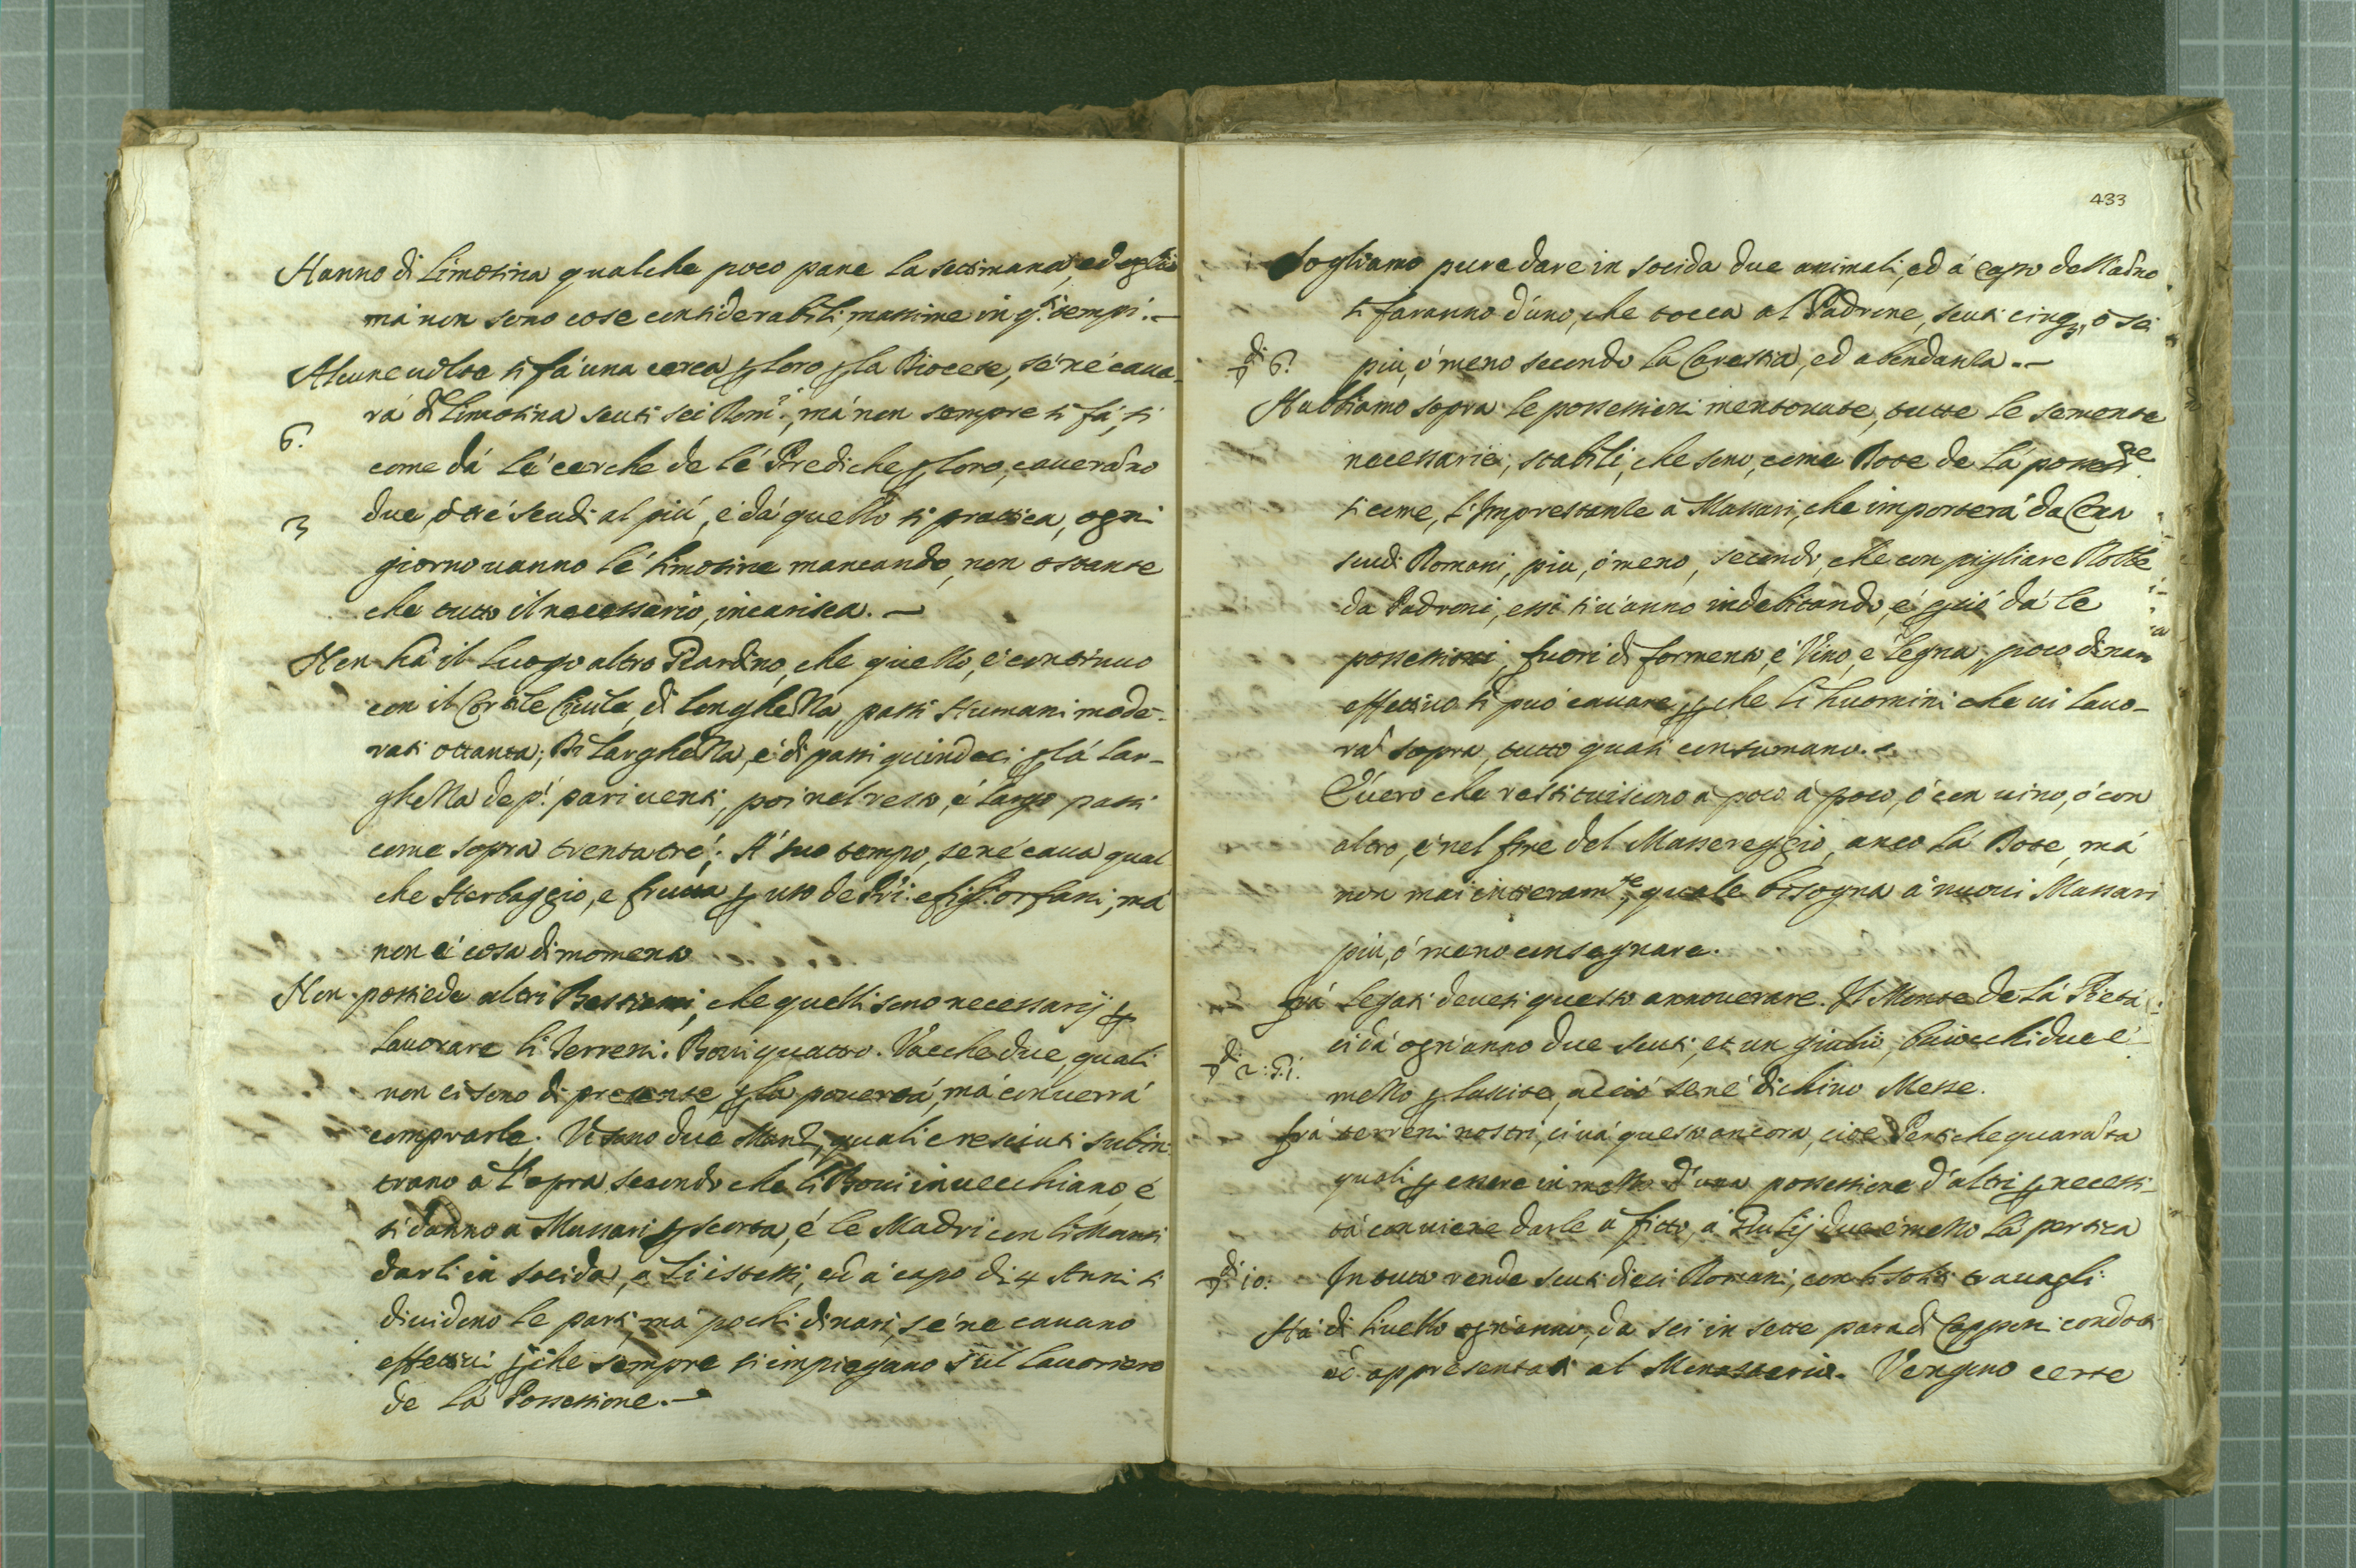 Hanno di Limosina qualche poco pane la settimana, ed oglio
má non sono cose considerabili, massime in q.ti tempi.
Alcune uolte si fá una cerca p loro p la Diocese, sé né caua-
rá di Limosina scuti sei Rom.i, má non sempre si fá, si
6.
come dá lé cerche de lé Prediche p loro, caueranno
due, ó tré scudi al piú, é dá quello si prattica, ogni
3
giorno uanno lé limosine mancando, non ostante
che tutto il necessario, incarisca.
Non há il Luogo altro Giardino, che quello, é continuo
con il Cortile Ciuile, di longhezza passi Humani mode-
rati ottanta; Di larghezza, é di passi quindeci p lá lar-
ghezza de p.i pari uenti, poi nel resto, é largo passi
come sopra trentatré; A suo tempo, se né caua qual
che Herbaggio, e frutta p uso de Pri: e figl: orfani, má
non é cosa di momento
Non possiede altri Bestiami, che quelli sono necessarij p
lauorare li Terreni. Boui quattro. Vacche due, quali
non ci sono di presente p la pouertá, má conuerrá
comprarle. Vi sono due Manzi, quali cresciuti subin-
trano á l'opra, secondo che li Boui inuecchiano, é
si danno a Massari p scorta, é le Madri con li Manzi
darli in socida, a li istessi, ed á capo di 4 Anni si
diuidono le parti, má pochi dinari, sé ne cauano
effettiui, p che sempre si impiegano sul lauoriero
de lá Possessione.
433
Sogliamo pure dare in socida due animali, ed á capo dell'anno
si faranno d'uno, che tocca al Padrone, scuti cinq, ó sei
di 6.
piú, ó meno secondo la Carestia, ed abondanza.
Habbiamo sopra le possessioni mentouate, tutte le semente
necessarie, stabili, che sono, come Dote de lá possess.ne
si come, l'Imprestanze á Massari, che importerá da Cento
scudi Romani, piu, ó meno, secondo, che con pigliare Robbe
da Padroni, essi si uanno indebitando, é p ció dá le
possessioni, fuori di formento, é Vino, e Legna, poco dinaro
effettiuo si può cauare, p che li huomini che ui lauo-
ra sopra, tutto quasi consumano.
É uero che restituiscono á poco á poco, ó con uino, ó con
altro, é nel fine del Massereggio, anco lá Dote, má
non mai interam.te, quale bisogna á nuoui Massari
piú, ó meno consegnare.
Frá Legati deuesi questo annouerare. Il Monte de lá Pietá
ci dá ogn'anno due scuti, et un giulio, baiocchi due é
di 2:
mezzo p lassite, acció se né dichino Messe.
Frá terreni nostri, ci uá questo ancora, cioe Pertiche quaranta
quali p essere in mezzo d'una possessione d'altri p necessi-
tá conuiene darle á fitto, á Giulij due é mezzo lá pertica
di 10.
In tutto rende scuti dieci Romani, con li soliti trauagli
Há di liuello ogn'anno, da sei in sette para di Capponi condotti
ed appresentati al Monasterio. Vengono certe